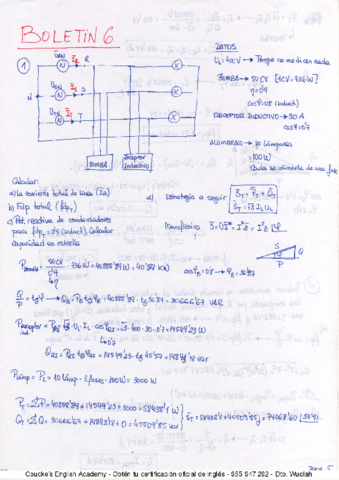 BOLETÍN 6
DATOS
UL = 400V → Porque no me dicen nada
BOMBA → 50 CV [1CV = 736W]
η = 0'9
cosφ = 0'8 (induct)
RECEPTOR INDUCTIVO → 30 A
cosφ = 0'7
ALUMBRADO → 30 lámparas
100W
Cada se alimenta de una fase
1
N
R
S
T
BOMBA
Receptor
Inductivo
Calcular:
a) la corriente total de línea (IR)
b) Fdp total (φT)
c) Pot. reactiva de condensadores
para fdpT = 0'9 (induct), Calcular
capacidad en estrella
a) Estrategia a seguir
Monofásico
S
Q
P
P bomba = 50CV/0'9 · 736W = 40888'89 W = 40'89 KW
cosφB = 0'8 → φB = 36'87
Q/P = tgφ → QB = PB tgφB = 40888'89 · tg 36'87 = 30666'67 VAR
P receptor ind = √3 · UL · IL · cosφRI = √3 · 400 · 30 · 0'7 = 14549'23 W
QRI = PRI tgφRI = 14549'23 · tg 45'57 = 14843'18 var
P lámp = PL = 10 lámp · 3 fases · 100W = 3000 W
PT = ΣP = 40888'89 + 14549'23 + 3000 = 58438'1 W
QT = ΣQ = 30666'67 + 14843'18 + 0 = 45509'85 var
ST = 58438'1 + 45509'85j = 74068'60 |37'91
Coucke's English Academy - Obtén tu certificación oficial de inglés - 955 947 292 - Dto. Wuolah